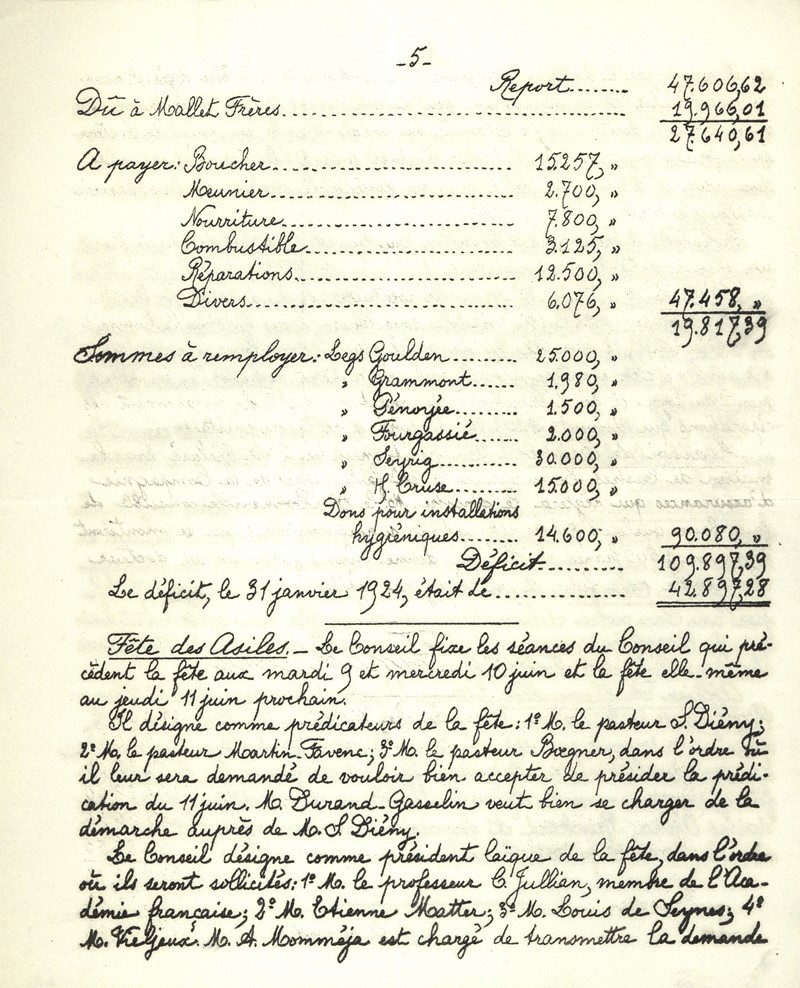 -5-
Report........ 47.606,62
Dû à Mallet Frères........ 19.966,01
27.640,61
A payer: Boucher........ 15.257, "
Meunier........ 2.700, "
Nourriture........ 7.800, "
Combustible........ 3.125, "
Réparations........ 12.500, "
Divers........ 6.076, " 47.458, "
19.817,39
Sommes à remployer: Legs Goulden........ 25.000, "
" Grammont....... 1.980, "
" Pénoyée........ 1.500, "
" Fourgassié....... 2.000, "
" Seyrig........ 30.000, "
" H. Cruse........ 15.000, "
Dons pour installations
hygiéniques........ 14.600, " 90.080, "
Déficit........ 109.897,39
Le déficit, le 31 janvier 1924, était de........ 42.897,28
Fête des Asiles. _ Le Conseil fixe les séances du Conseil qui pré-
cèdent la fête aux mardi 9 et mercredi 10 juin et la fête elle-même
au jeudi 11 juin prochain.
Il désigne comme prédicateurs de la fête: 1º M. le pasteur S. Diény;
2º M. le pasteur Martin-Favenc; 3º M. le pasteur Boegner, dans l'ordre où
il leur sera demandé de vouloir bien accepter de présider la prédi-
cation du 11 juin. M. Durand-Gasselin veut bien se charger de la
démarche auprès de M. S Diény.
Le Conseil désigne comme président laïque de la fête, dans l'ordre
où ils seront sollicités: 1º M. le professeur C. Jullian, membre de l'Aca-
démie française; 2º M. Etienne Matter; 3º M. Louis de Seynes; 4º
M. Vieljeux. M. A. Momméja est chargé de transmettre la demande